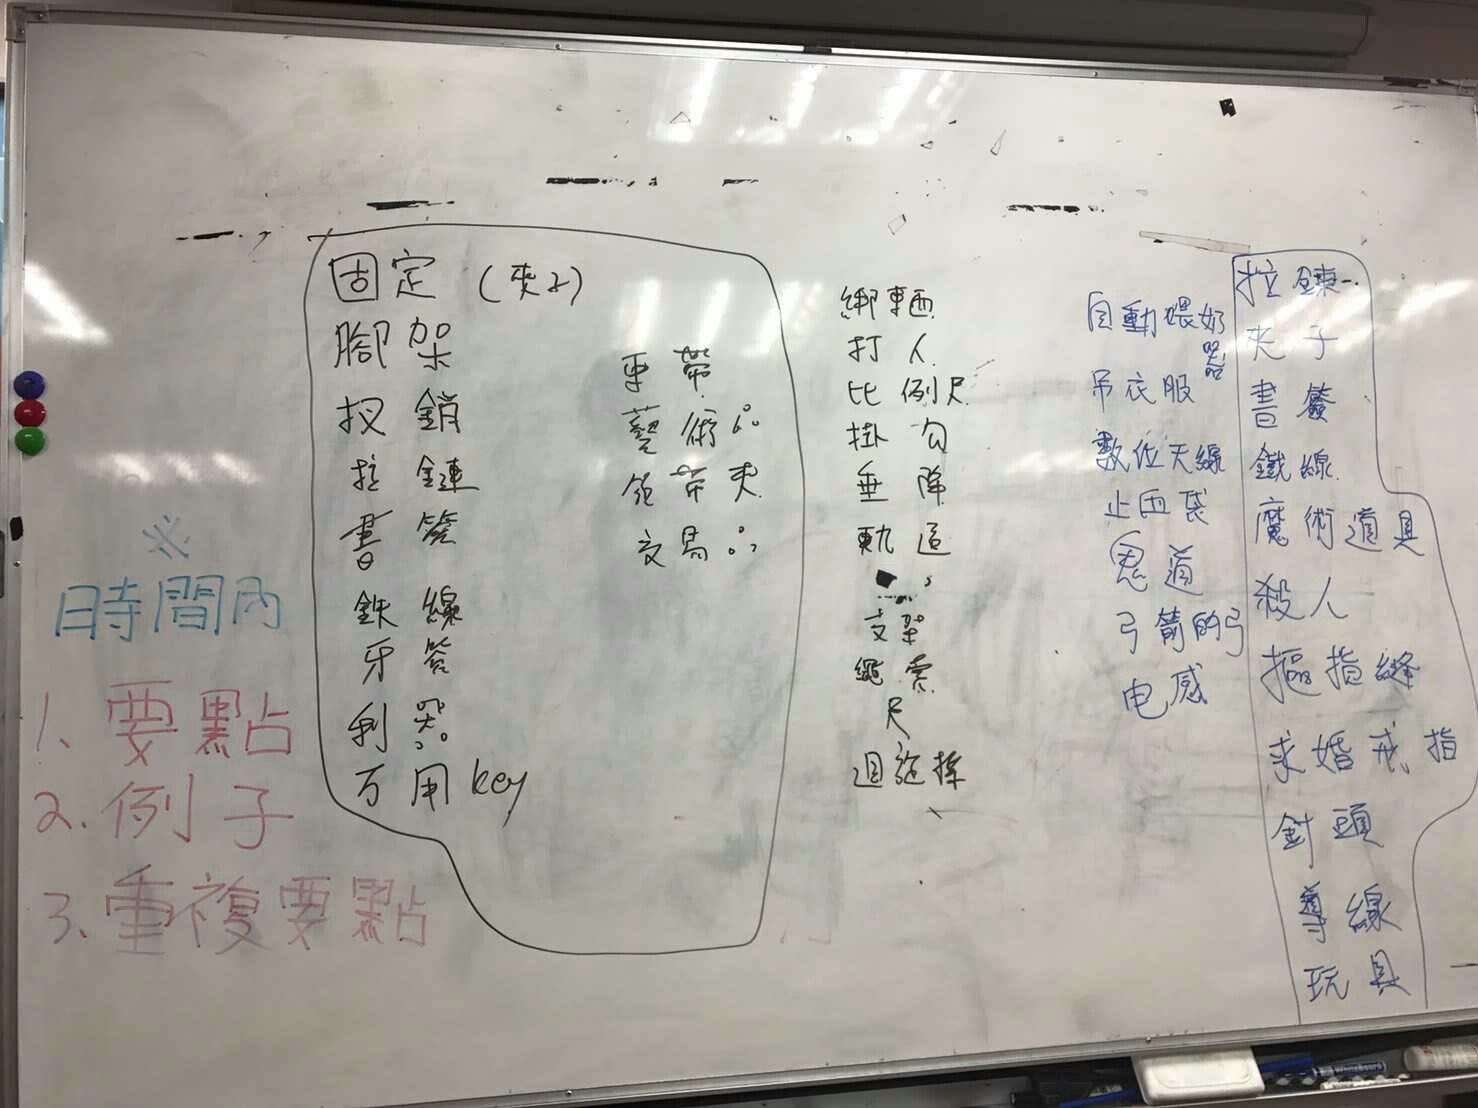 ※
時間內
1、要點
2.例子
3、重複要點
固定 (夾子)
腳架
扠鎖
拉鏈
書簽
鉄線
牙簽
利器
万用key
藝術品
領帶夾
交易品
綁
打人
比例尺
掛勾
垂降
軌道
支架
繩索
尺
迴旋摽
自動喂奶器
吊衣服
數位天線
止血袋
弓箭的弓
电感
拉鍊
夾子
書籤
鐵線
魔術道具
殺人
摳指縫
求婚戒指
針頭
導線
玩具